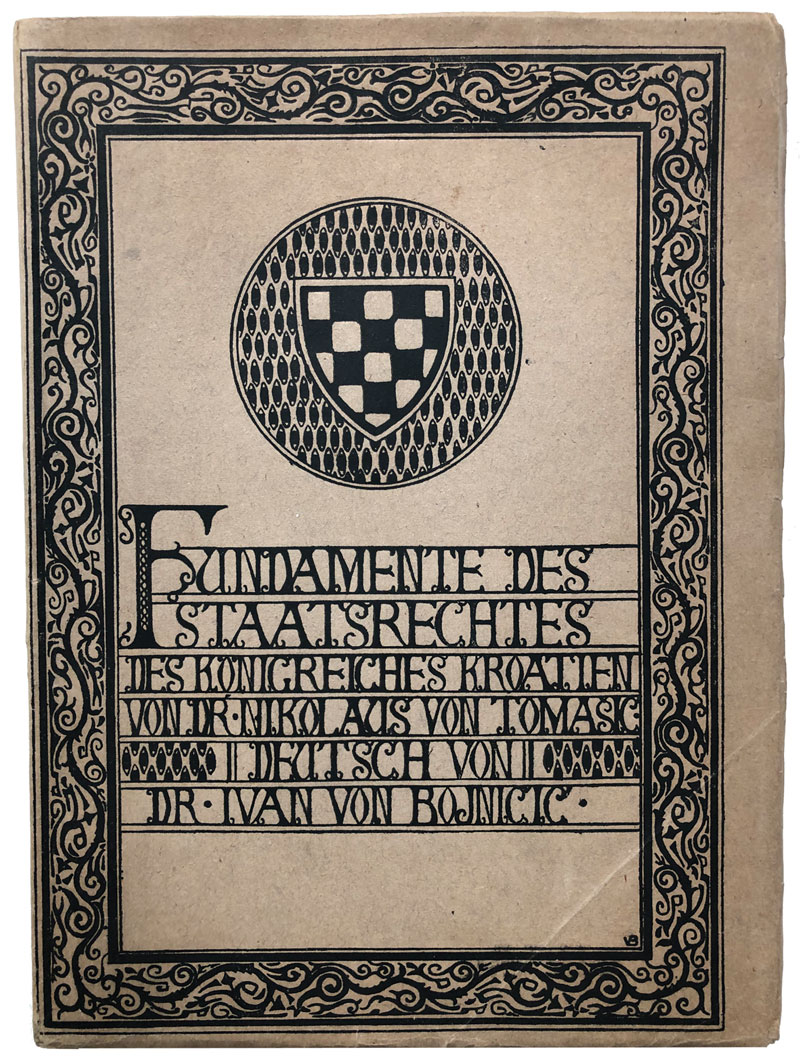 FUNDAMENTE DES
STAATSRECHTES
DES KÖNIGREICHES KROATIEN
VON DR · NIKOLAUS VON TOMASIC
DEUTSCH VON
DR · IVAN VON BOJNICIC ·
VB